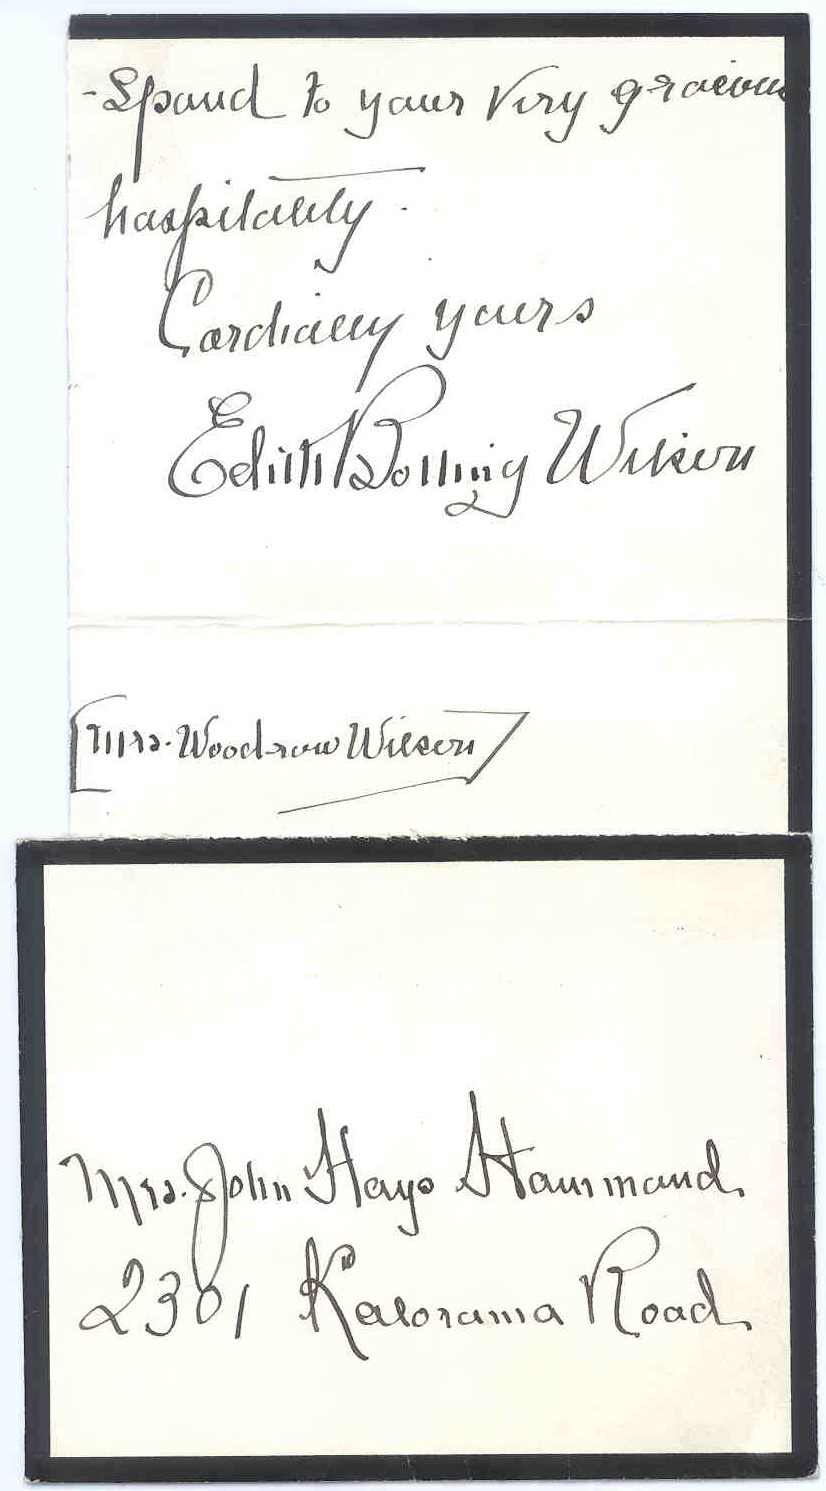 -spond to your very gracious
hospitality.
Cordially yours
Edith Bolling Wilson
[Mrs. Woodrow Wilson]
Mrs. John Hays Hammond.
2301 Kalorama Road.